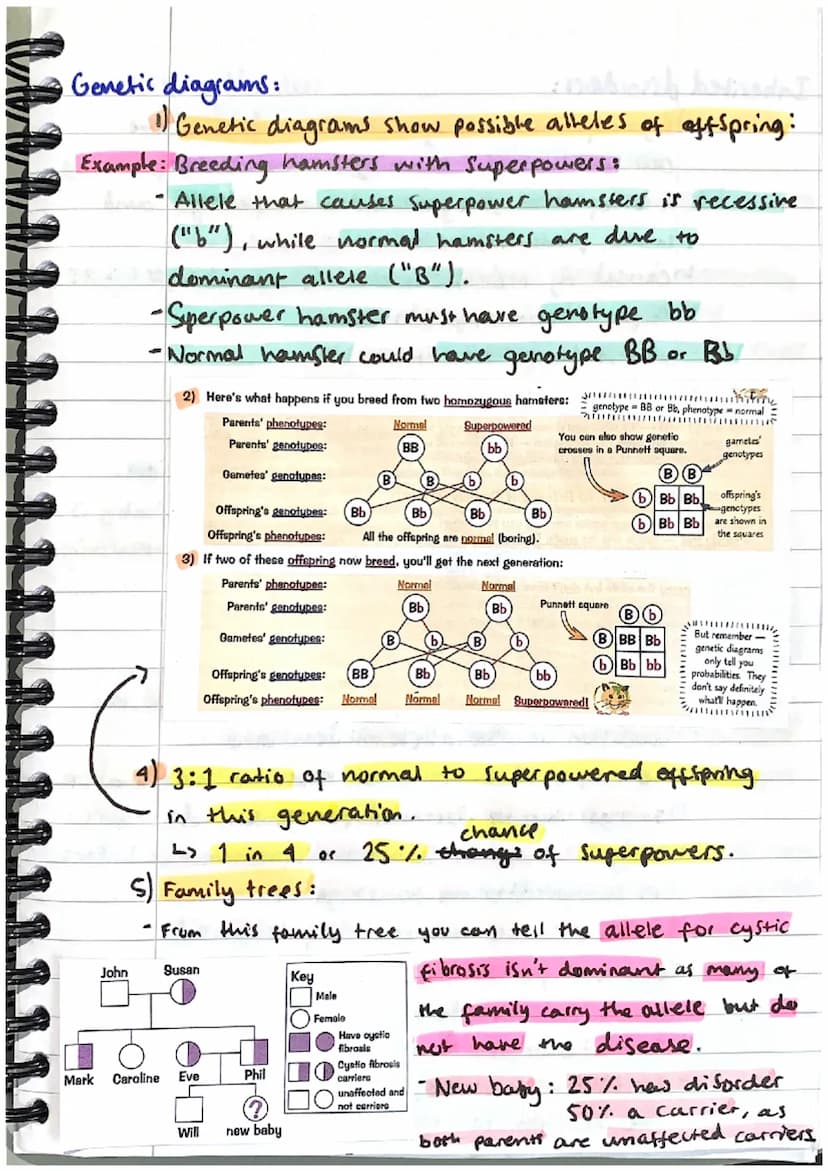 Genetic diagrams:
1) Genetic diagrams show possible alleles of offspring:
Example: Breeding hamsters with superpowers:
- Allele that causes superpower hamsters is recessive
("b"), while normal hamsters are due to
dominant allele ("B").
- Superpower hamster must have genotype bb
- Normal hamster could have genotype BB or Bb
2) Here's what happens if you breed from two homozygous hamsters:
genotype = BB or Bb, phenotype = normal
Parents' phenotypes: Normal Superpowered
Parents' genotypes: BB bb
Gametes' genotypes: B B b b
Offspring's genotypes: Bb Bb Bb Bb
Offspring's phenotypes: All the offspring are normal (boring).
You can also show genetic
crosses in a Punnett square.
gametes'
genotypes
B B
b Bb Bb
b Bb Bb
offspring's
genotypes
are shown in
the squares
3) If two of these offspring now breed, you'll get the next generation:
Parents' phenotypes: Normal Normal
Parents' genotypes: Bb Bb
Gametes' genotypes: B b B b
Offspring's genotypes: BB Bb Bb bb
Offspring's phenotypes: Normal Normal Normal Superpowered!
Punnett square
B b
B BB Bb
b Bb bb
But remember —
genetic diagrams
only tell you
probabilities. They
don't say definitely
what'll happen.
4) 3:1 ratio of normal to superpowered offspring
in this generation.
chance
↳ 1 in 4 or 25% change of superpowers.
5) Family trees:
- From this family tree you can tell the allele for cystic
fibrosis isn't dominant as many of
the family carry the allele but do
not have the disease.
- New baby: 25% has disorder
50% a carrier, as
both parents are unaffected carriers
John Susan
Mark Caroline Eve Phil
?
Will new baby
Key
Male
Female
Have cystic
fibrosis
Cystic fibrosis
carriers
unaffected and
not carriers